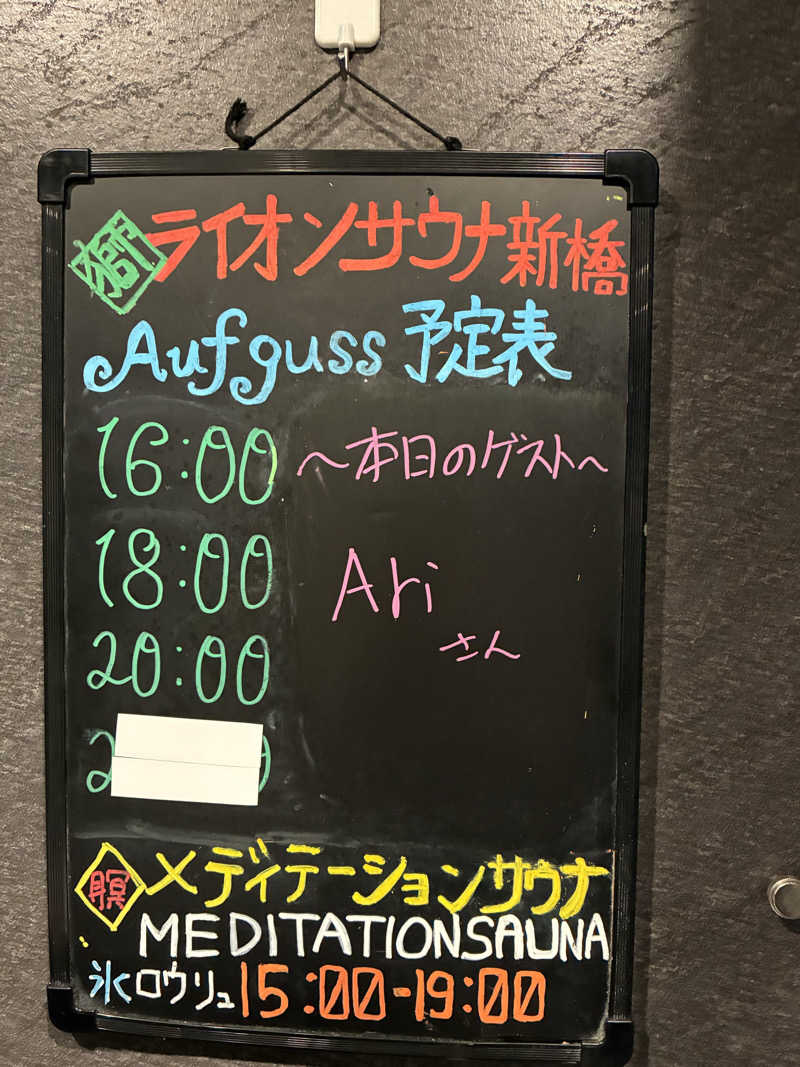 獅 ライオンサウナ新橋
Aufguss 予定表
16:00 ～本日のゲスト～
18:00 Ari
さん
20:00
瞑 メディテーションサウナ
MEDITATIONSAUNA
氷ロウリュ 15:00-19:00